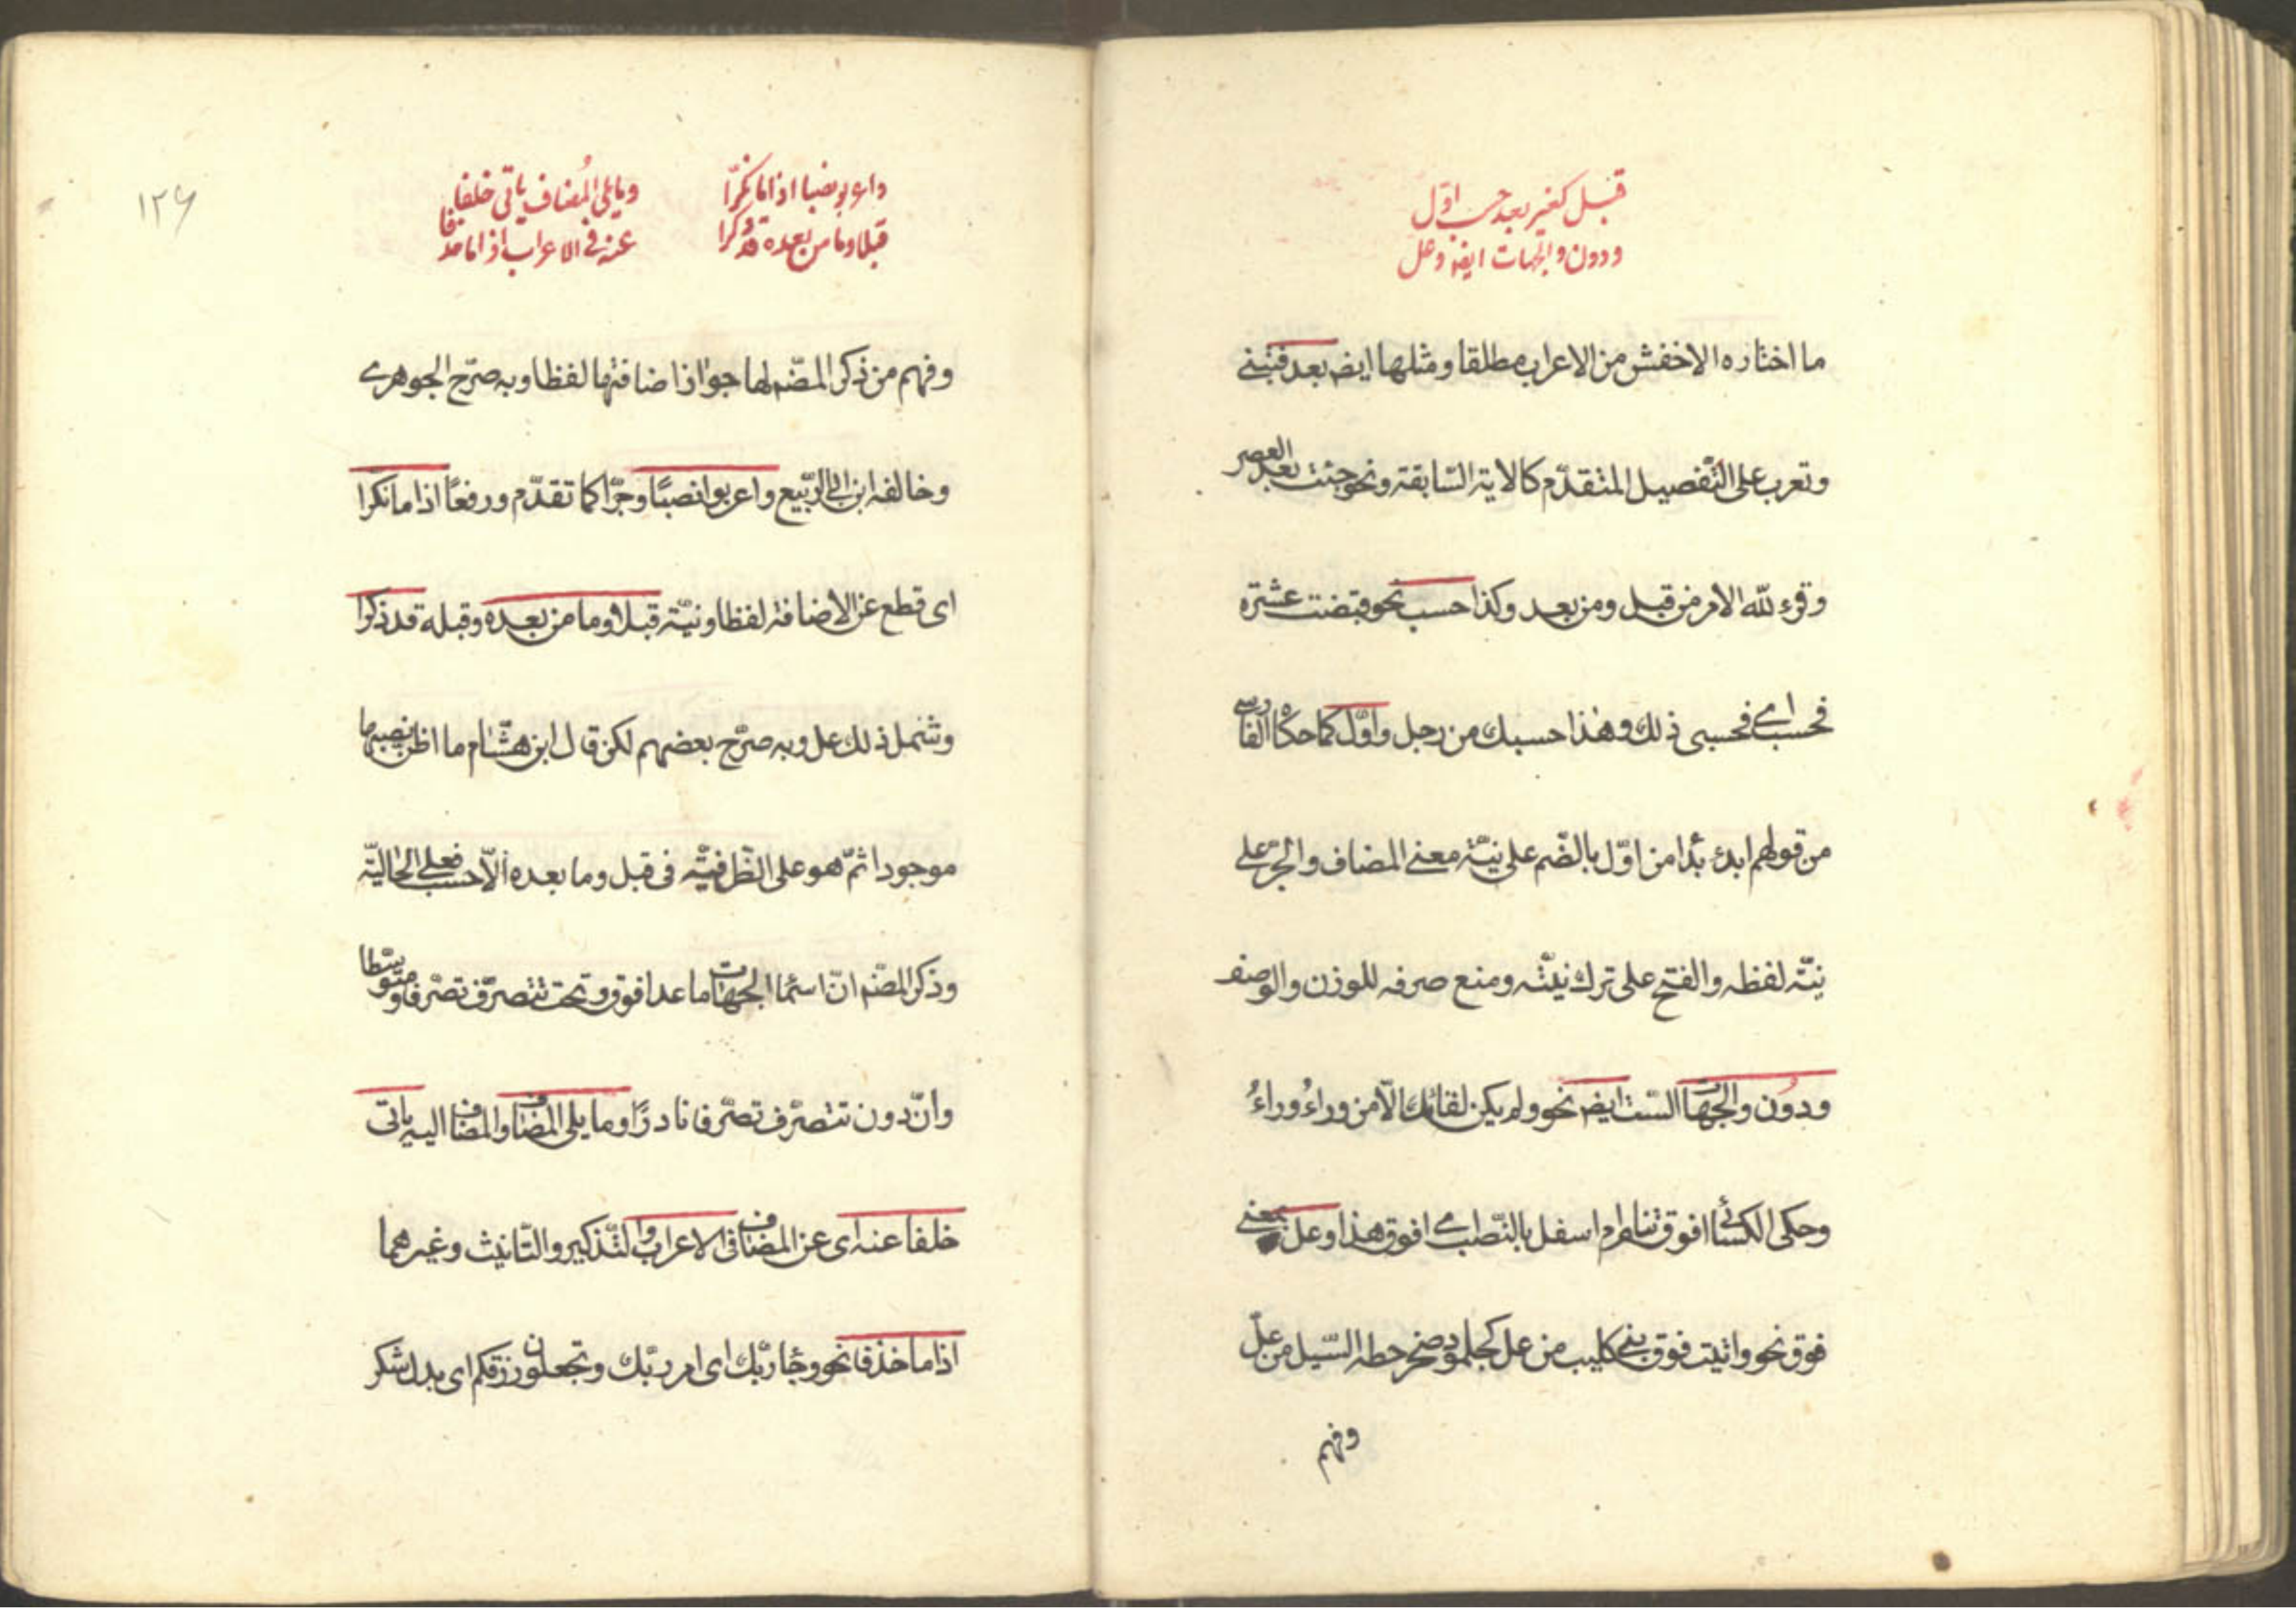 قبل كغير بعد حسب اوّل
ودون والجهات ايضا وعل
ما اختاره الاخفش من الاعراب مطلقا ومثلها ايضا بعد فتبنى
وتعرب على التّفصيل المتقدّم كالاية السّابقة ونحو جئت بعد العصر
وقرء للّه الامر من قبل ومن بعد وكذا حسب نحو قبضت عشرة
فحسب اى فحسبى ذلك وهذا حسبك من رجل واوّل كما حكاه الفارسى
من قولهم ابدء بذا من اوّل بالضّم على نيّة معنى المضاف والجرّ على
نيّة لفظه والفتح على ترك نيّته ومنع صرفه للوزن والوصف
ودون والجهات السّت ايضا نحو ولم يكن لقائك الّا من وراءُ وراءُ
وحكى الكسائى افوق تنام ام اسفل بالنّصب اى افوق هذا وعل بمعنى
فوق نحو واتيت فوق بنى كليب من عل كجلمود صخر حطه السّيل من عل
وفهم
واعربوا نصبا اذا ما نكّرا
قبلا وما من بعده قد ذكرا
وما يلى المُضاف ياتى خلفا
عنه فى الاعراب اذا ما حذفا
١٢٦
وفهم من ذكر المصّنم لها جواز اضافتها لفظا وبه صرّح الجوهرى
وخالفه ابن ابى الرّبيع واعربوا نصبًا وجرّا كما تقدّم ورفعًا اذا ما نكرا
اى قطع عن الاضافة لفظا ونيّة قبلا وما من بعده وقبله قد ذكرا
وشمل ذلك عل وبه صرّح بعضهم لكن قال ابن هشام ما اظن نصبها
موجودا ثمّ هو على الظّرفيّة فى قبل وما بعده الّا حسب فعلى الحاليّة
وذكر المصّنم انّ اسما الجهات ما عدا فوق وتحت تتصرّف تصرّفا متوسّطا
وانّ دون تتصرّف تصرّفا نادرًا وما يلى المضاف والمضاف اليه ياتى
خلفا عنه اى عن المضاف فى الاعراب والتّذكير والتّانيث وغيرهما
اذا ما حذفا نحو وجا ربّك اى امر ربّك وتجعلون رزقكم اى بدل شكر